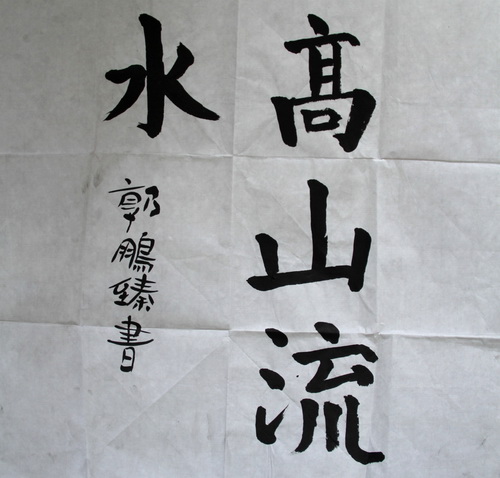 高山流
水
郭鵬臻書